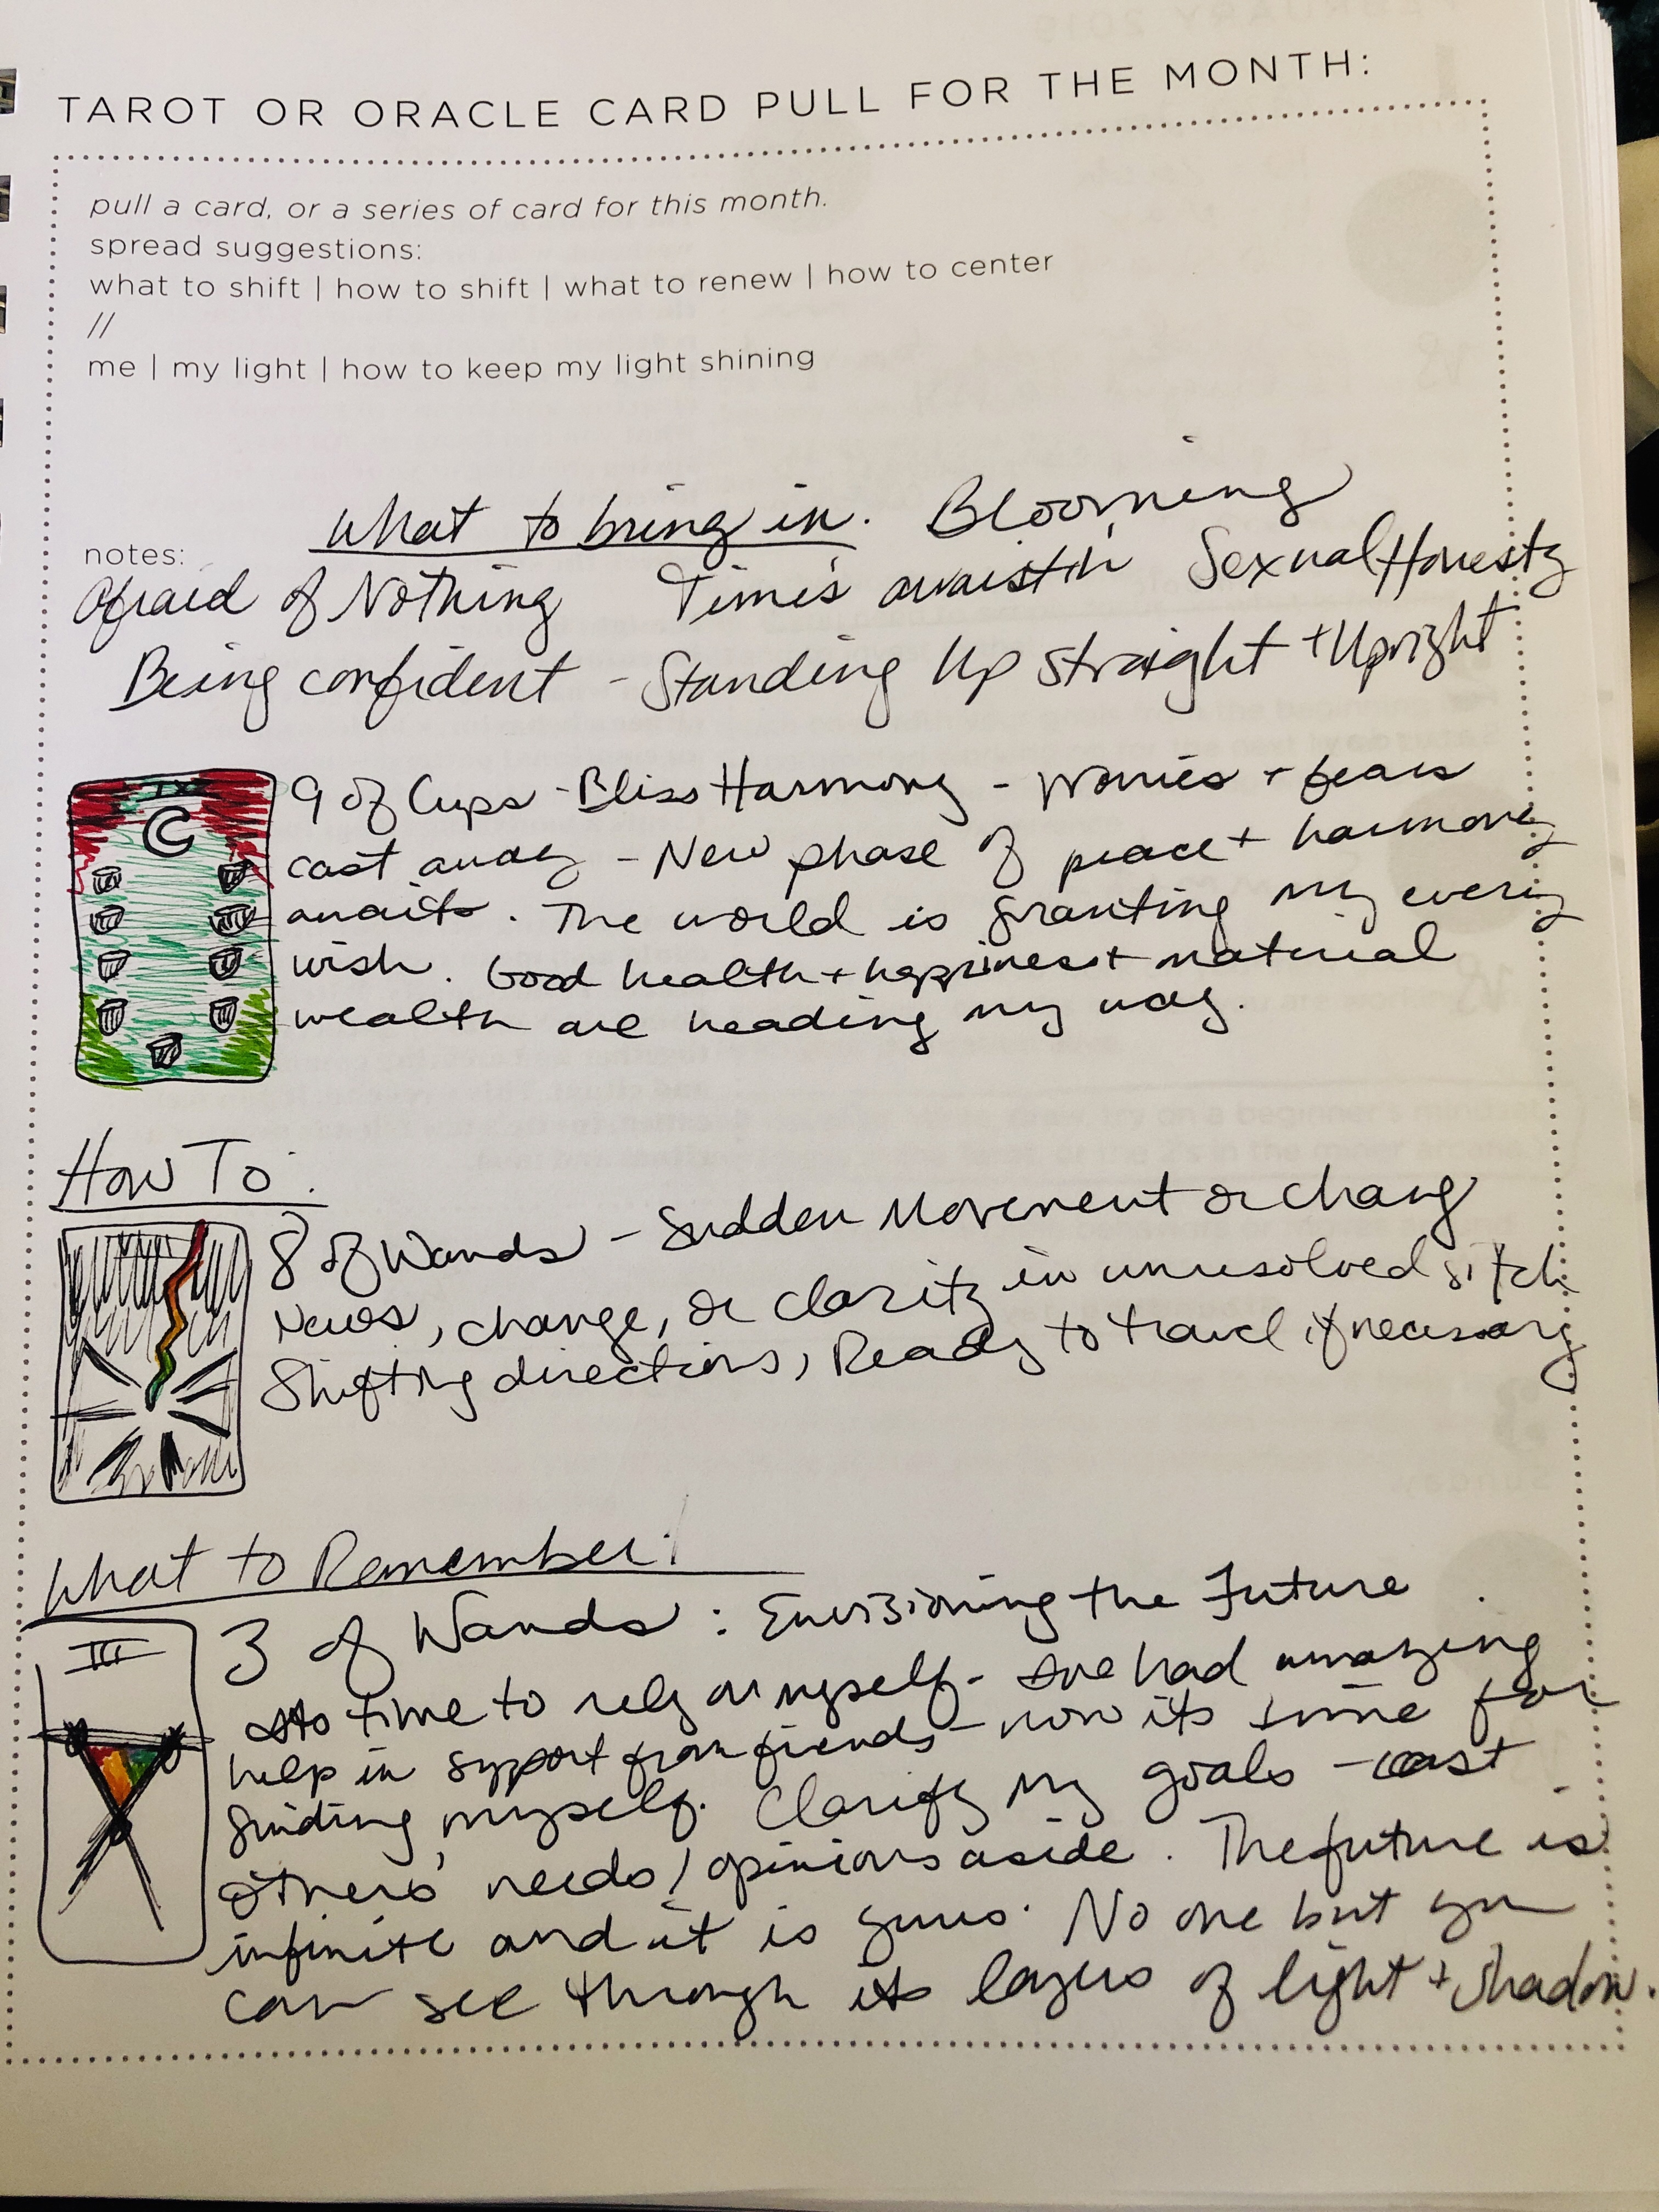 TAROT OR ORACLE CARD PULL FOR THE MONTH:
pull a card, or a series of card for this month.
spread suggestions:
what to shift | how to shift | what to renew | how to center
//
me | my light | how to keep my light shining
What to bring in. Blooming
notes:
Afraid of Nothing Time's awaistin' Sexual Honesty
Being confident - Standing Up straight + Upright
IX
C
9 of Cups - Bliss Harmony - Worries + fears
cast away - New phase of peace + harmony
awaits. The world is granting my every
wish. Good health + happiness + material
wealth are heading my way.
How To:
8 of Wands - Sudden Movement or chang
News, change, or clarity in unresolved sitch
Shifting directions, Ready to travel if necessary
What to Remember:
III
3 of Wands: Envisioning the Future
time to rely on myself - I've had amazing
help in support from friends - now its time for
finding myself. Clarify my goals - cast
others' needs/opinions aside. The future is
infinite and it is yours. No one but you
can see through its layers of light + shadow.